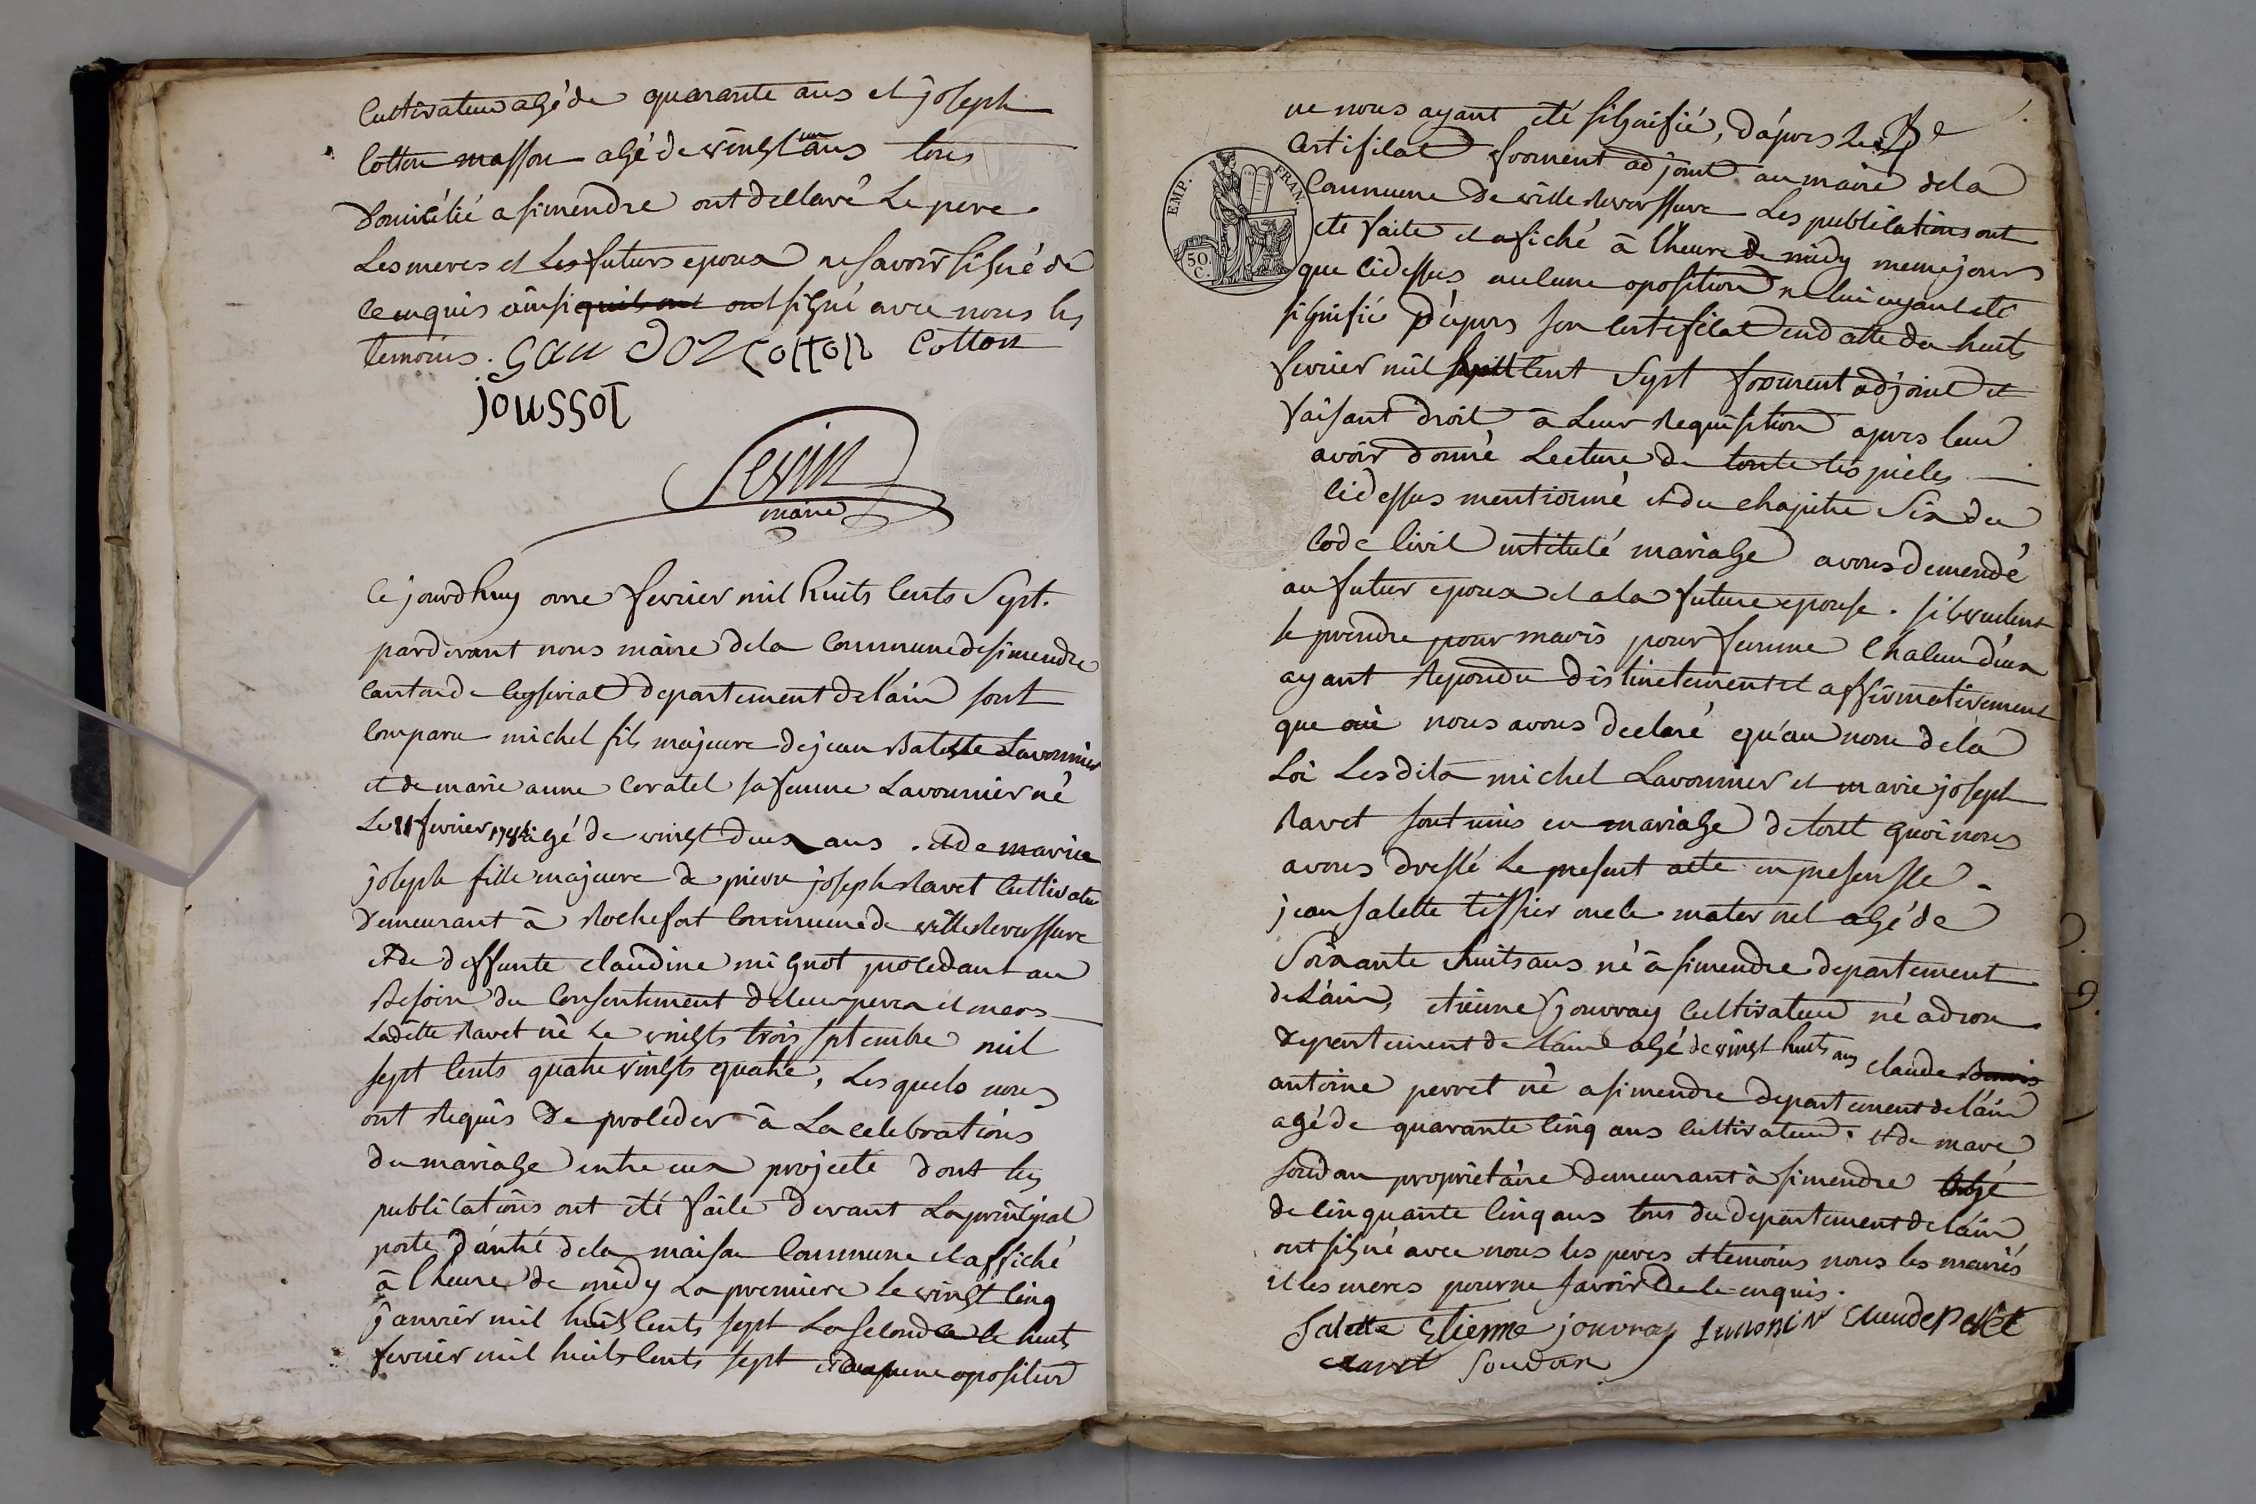 Cultivateur agé de quarante ans et joseph
Cotton masson agé de vingt un ans tous
Domicilié a simendre ont dellaré Le pere
Les meres et Les futurs epoux ne savoir signé de
ce enquis ainsi quils ont ont signé avec nous les
temoins. Cotton Cotton
joussot
maire
Ce jourdhuy onze fevrier mil huits Cents Sept.
pardevant nous maire dela Commune de simendre
Canton de Ceyseriat departement de lain sont
Comparu michel fils majeure de jean Batiste Lavonnier
et de marie anne Coratel sa femme Lavonnier né
Le fevrier agé de vingt deux ans . et de marie
joseph fille majeure de pierre joseph Ravet Cultivateur
Demeurant à Rochefort Commune de ville Reverssure
et de deffunte claudine mignot procedant au
Besoin du Consentement de leur peres et meres
Ladite Ravet né Le vingts trois septembre mil
sept Cents quatre vingts quatre, Les quels nous
ont Requis De proceder à La celebrations
du mariage entre eux projeté dont les
publications ont été faite Devant La principal
porte dantré dela maison Commune et affiché
à lheure de midy La premiere le vingt Cinq
janvier mil huits Cents sept La seconde le huit
fevrier mil huits Cents sept et aucune oposition
ne nous ayant été signifié, dapres Le
Certificat forment adjoint au maire dela
Commune De ville Reverssure Les publications ont
eté faite et afiché à lheure de midy meme jours
que ci dessus aucune oposition ne lui ayant eté
signifié Dapres son Certificat en datte du huit
fevrier mil huit Cent Sept forment adjoint et
faisant droit à Leur Requisition apres leur
avoir donné Lecture de toute les pieces
ci dessus mentionné et du chapitre Six du
Code Civil intitulé mariage avons demendé
au futur epoux et a la future epouse . si ils veulent
se prendre pour maris pour femme Chaleun deux
ayant Repondu distinctement et affirmativement
que oui nous avons declaré qu'au nom dela
Loi Les dits michel Lavonnier et marie joseph
Ravet sont unis en mariage de tout quoi nous
avons dressé Le present acte en presensse
jean salette tissier oncle maternel agé de
Soixante huits ans né à simendre departement
de Lain, etienne jouvray Cultivateur né a drom
Departement de Lain agé de vingt huits ans claude
antoine perret né a simendre departement de lain
agé de quarante Cinq ans Cultivateur. et de marc
soudan propriétaire demeurant à simendre agé
de Cinquante Cinq ans tous du departement de lain
ont signé avec nous les peres et temoins nous les mariés
et les meres pour ne savoir De Ce enquis.
Salette Etienne jouvray Claude Perret
Ravet Soudan
EMP. FRAN.
50. C.